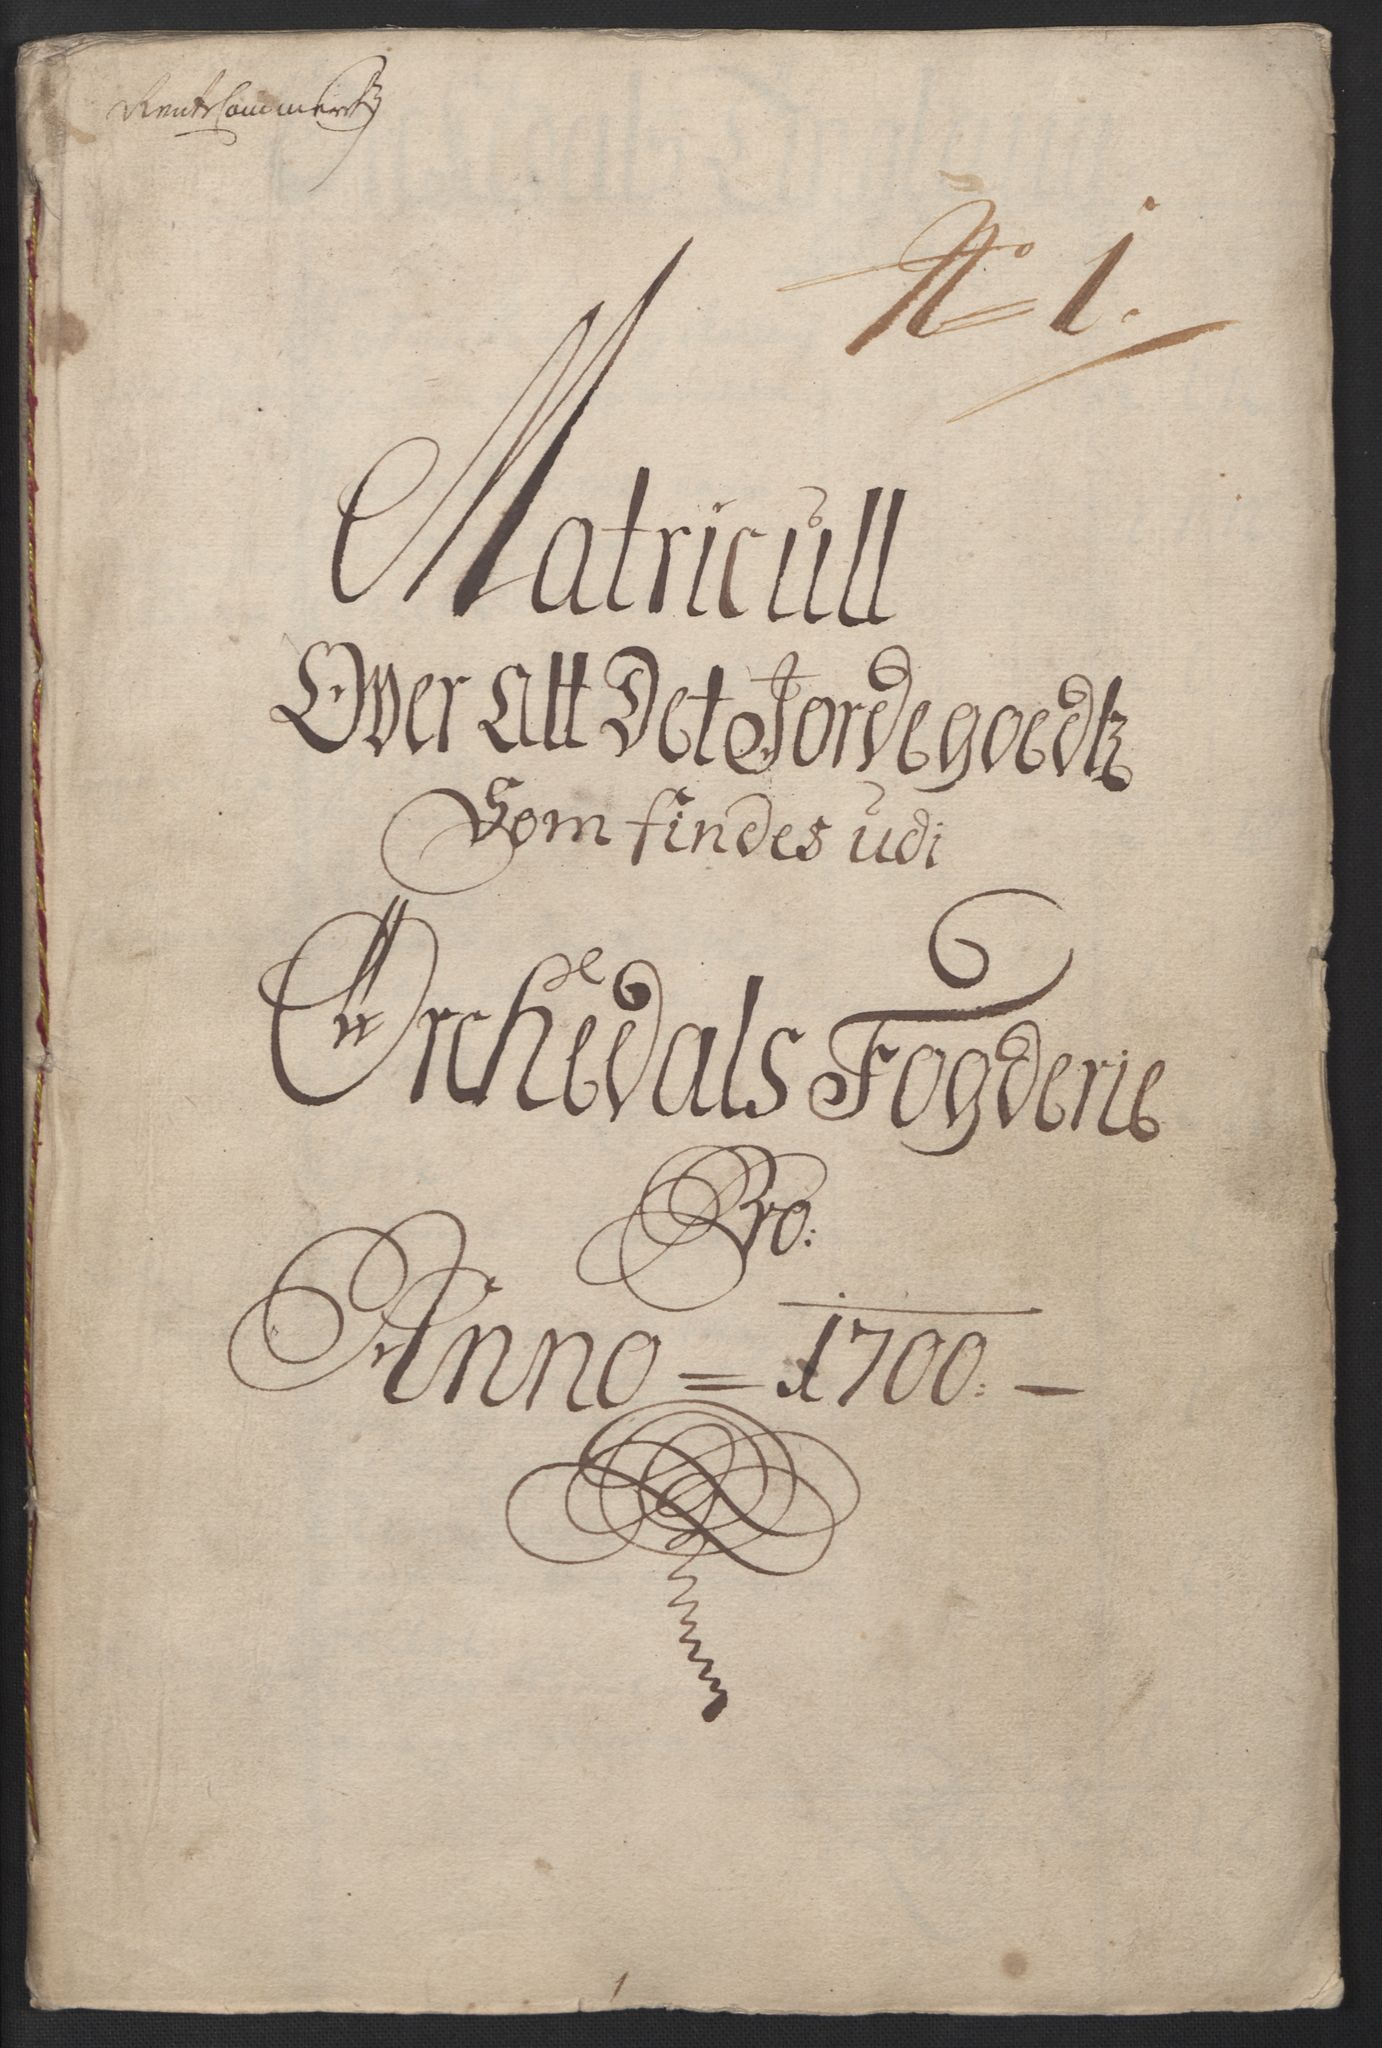 RenteCammerit
No 1.
Matricull
Ower Alt Det Jordegoedtz
Som findes udi
Orchedals Fogderie
Pro:
Anno = 1700: —
1